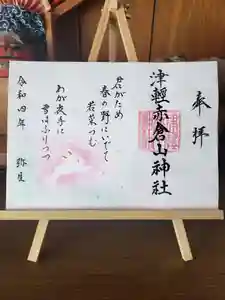 奉拝
津軽赤倉山神社
君がため
春の野にいでて
若菜つむ
わが衣手に
雪はふりつつ
令和四年 弥生